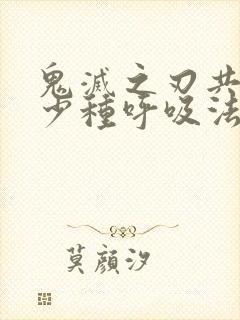 鬼滅之刃共
少種呼吸法
莫顏汐